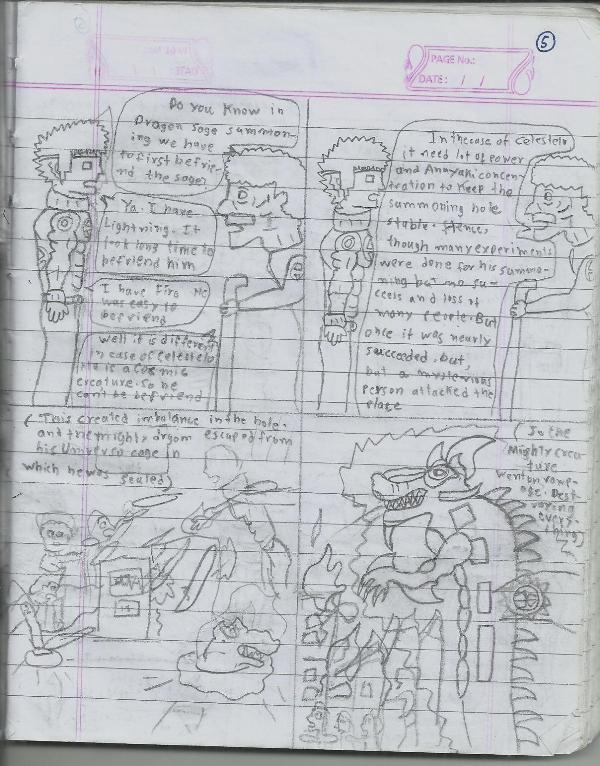 5
PAGE No.:
DATE: / /
Do you Know in
Dragon sage summon-
ing we have
to first befrie-
nd the sage?
Ya. I have
Lightning. It
took long time to
befriend him
I have Fire. He
was easy to
befriend
Well it is different
in case of Celestelo
He is a Cosmic
creature. So he
can't be befriend
In the case of Celestelo
it need lot of power
and Anayaki concen-
tration to keep the
summoning hole
stable. Hence,
though many experiments
were done for his summo-
ning but no su-
ccess and loss of
many people. But
once it was nearly
succeeded. but,
but a mysterious
person attached the
place
(This created imbalance in the hole.
and the mighty drgom escaped from
his Universo cage in
which he was sealed)
So the
Mighty Crea-
ture
went on ramp-
age. Dest-
roying
every-
thing)